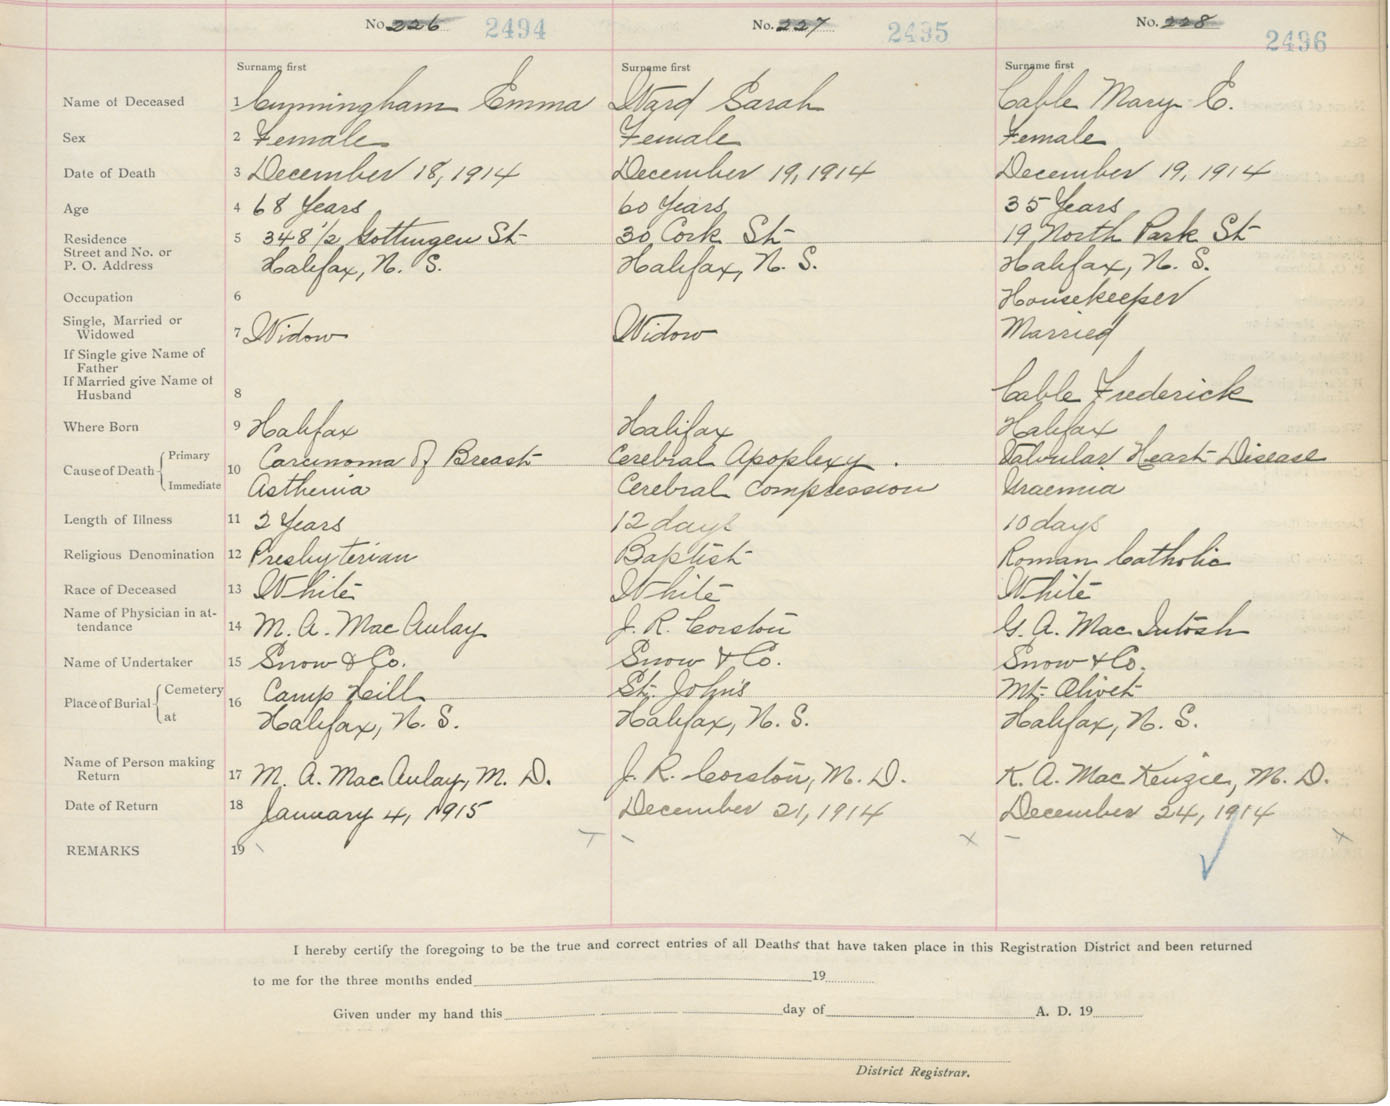 No. 226 2494 No. 227 2495 No. 228 2496
Surname first Surname first Surname first
Name of Deceased 1 Cunningham Emma Ward Sarah Cable Mary E.
Sex 2 Female Female Female
Date of Death 3 December 18, 1914 December 19, 1914 December 19, 1914
Age 4 68 Years 60 Years 35 Years
Residence 5 348 1/2 Gottingen St 30 Cork St 19 North Park St
Street and No. or
P. O. Address Halifax, N. S. Halifax, N. S. Halifax, N. S.
Occupation 6 Housekeeper
Single, Married or
Widowed 7 Widow Widow Married
If Single give Name of
Father
If Married give Name of
Husband 8 Cable Frederick
Where Born 9 Halifax Halifax Halifax
Cause of Death Primary 10 Carcinoma of Breast Cerebral Apoplexy. Valvular Heart Disease
Immediate Asthenia Cerebral Compression Uraemia
Length of Illness 11 2 Years 12 days 10 days
Religious Denomination 12 Presbyterian Baptist Roman Catholic
Race of Deceased 13 White White White
Name of Physician in at-
tendance 14 M. A. MacAulay J. R. Corston G. A. MacIntosh
Name of Undertaker 15 Snow & Co. Snow & Co. Snow & Co.
Place of Burial Cemetery 16 Camp Hill St. John's Mt. Olivet
at Halifax, N. S. Halifax, N. S. Halifax, N. S.
Name of Person making
Return 17 M. A. MacAulay, M. D. J. R. Corston, M. D. K. A. MacKenzie, M. D.
Date of Return 18 January 4, 1915 December 21, 1914 December 24, 1914
REMARKS 19
I hereby certify the foregoing to be the true and correct entries of all Deaths that have taken place in this Registration District and been returned
to me for the three months ended 19
Given under my hand this day of A. D. 19
District Registrar.